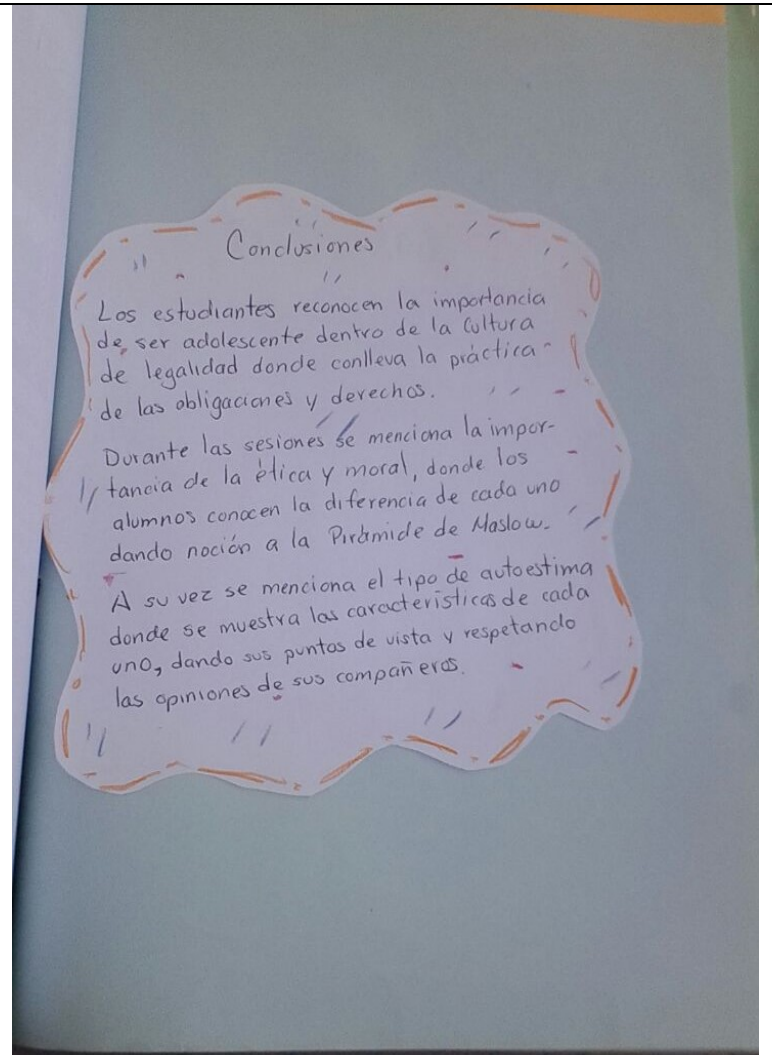 Conclusiones
Los estudiantes reconocen la importancia
de ser adolescente dentro de la Cultura
de legalidad donde conlleva la práctica
de las obligaciones y derechos.
Durante las sesiones se menciona la impor-
tancia de la ética y moral, donde los
alumnos conocen la diferencia de cada uno
dando noción a la Pirámide de Maslow.
A su vez se menciona el tipo de autoestima
donde se muestra las características de cada
uno, dando sus puntos de vista y respetando
las opiniones de sus compañeros.